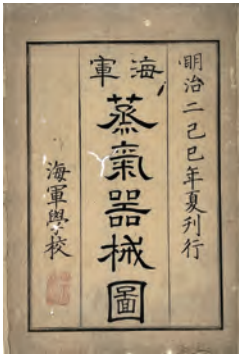 明治二己巳年夏刊行
海軍
蒸氣器械圖
海軍學校